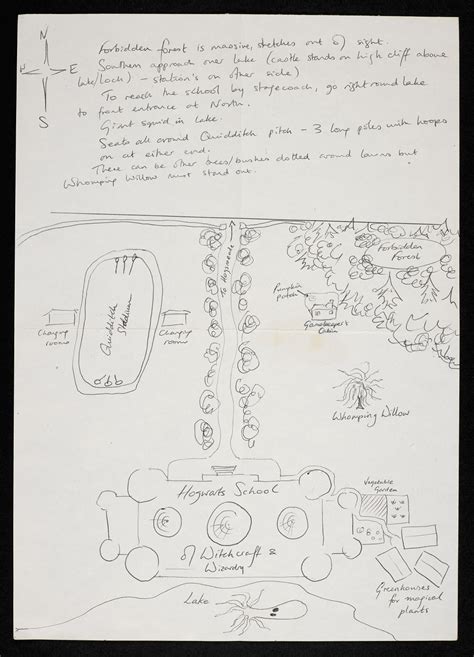 N
W
E
S
Forbidden forest is massive, stretches out of sight.
Southern approach over lake (castle stands on high cliff above
lake/loch) – station's on other side)
To reach the school by stagecoach, go right round lake
to front entrance at North.
Giant squid in Lake.
Seats all around Quidditch pitch – 3 long poles with hoops
on at either end.
There can be other trees/bushes dotted around lawns but
Whomping Willow must stand out.
To Hogsmeade
Forbidden
Forest
Pumpkin
patch
Gamekeeper's
Cabin
Changing
rooms
Quidditch
Stadium
Changing
rooms
Whomping Willow
Hogwarts School
of Witchcraft &
Wizardry
Vegetable
Garden
Greenhouses
for magical
plants
Lake